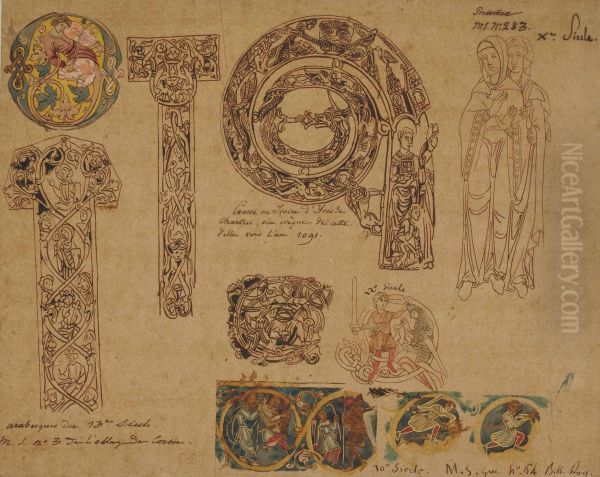 Prudentius
M.S. N° 283.
Xme Siècle.
Crosse en Ivoire d'Ives de
Chartres, élu évêque de cette
Ville vers l'an 1091.
Xe Siècle
arabesques du 13me Siècle
M.S. n° 3 de L'abbaye de Corbie.
10e Siècle. M.S. grec N° 64 Bibl. Roy.
NiceArtGallery.com